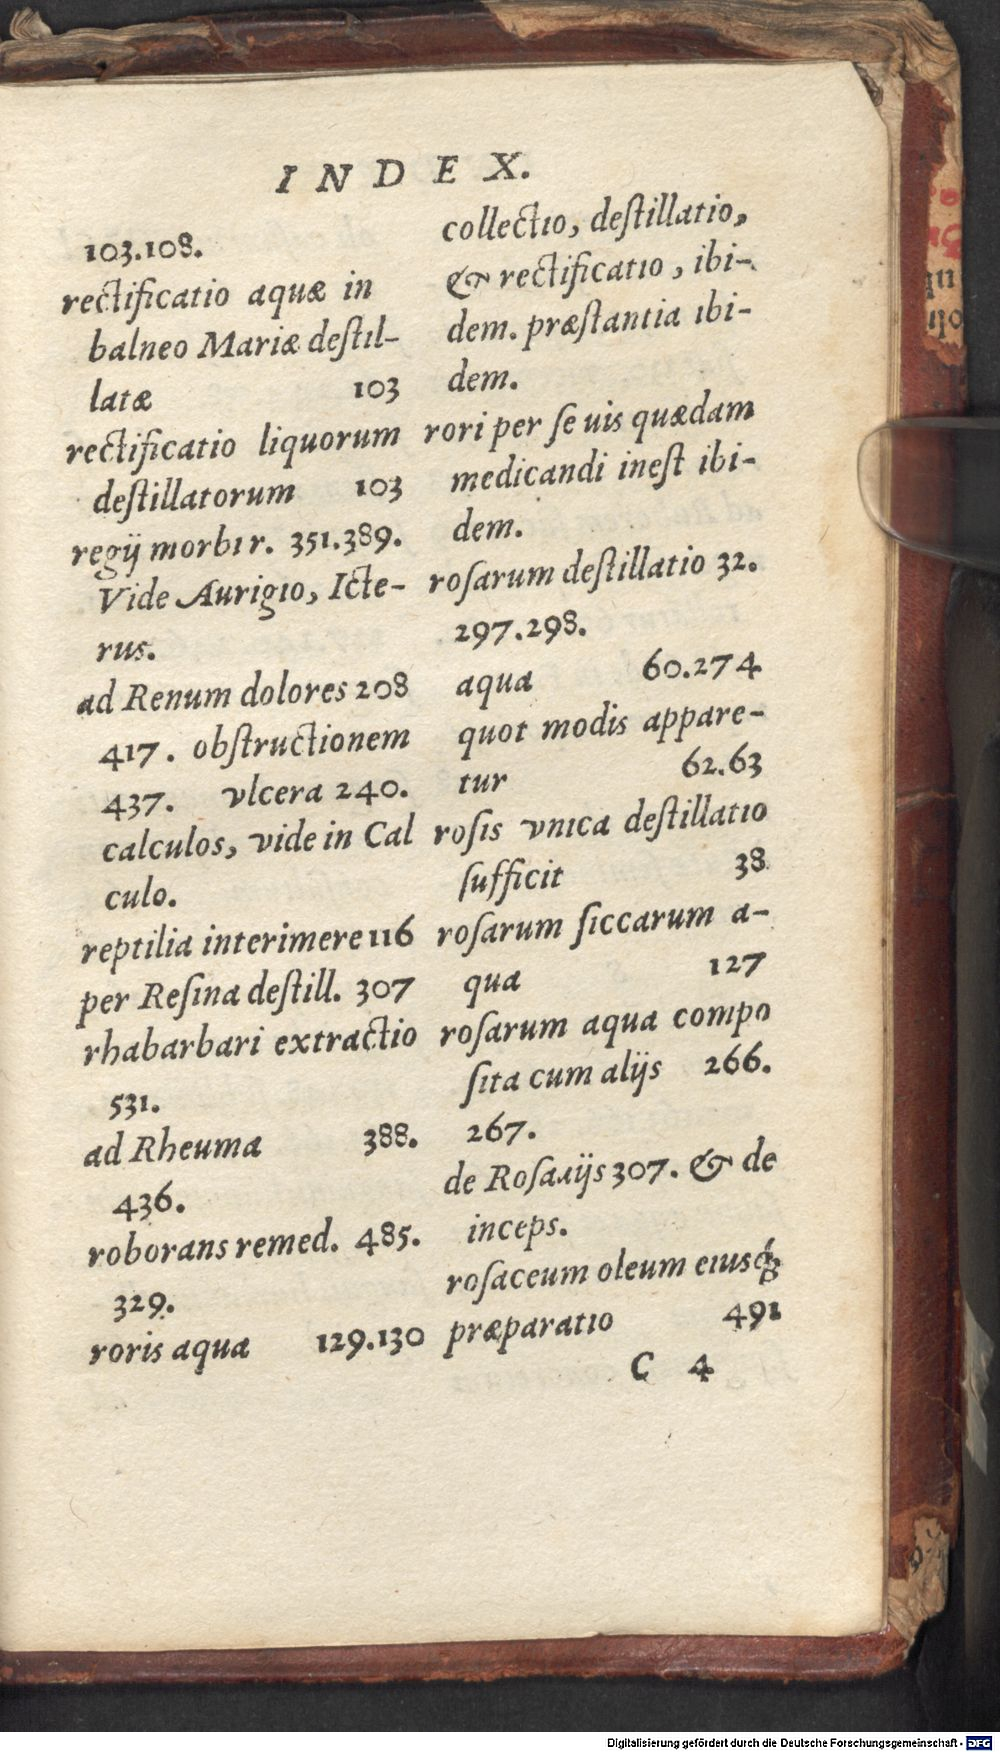 INDEX.
103.108.
rectificatio aquæ in
balneo Mariæ destil-
latæ 103
rectificatio liquorum
destillatorum 103
regij morbi r. 351.389.
Vide Aurigio, Icte-
rus.
ad Renum dolores 208
417. obstructionem
437. vlcera 240.
calculos, vide in Cal
culo.
reptilia interimere 116
per Resina destill. 307
rhabarbari extractio
531.
ad Rheuma 388.
436.
roborans remed. 485.
329.
roris aqua 129.130
collectio, destillatio,
& rectificatio, ibi-
dem. præstantia ibi-
dem.
rori per se uis quædam
medicandi inest ibi-
dem.
rosarum destillatio 32.
297.298.
aqua 60.274
quot modis appare-
tur 62.63
rosis vnica destillatio
sufficit 38
rosarum siccarum a-
qua 127
rosarum aqua compo
sita cum alijs 266.
267.
de Rosarijs 307. & de
inceps.
rosaceum oleum eiusq́;
præparatio 491
C 4
Digitalisierung gefördert durch die Deutsche Forschungsgemeinschaft - DFG